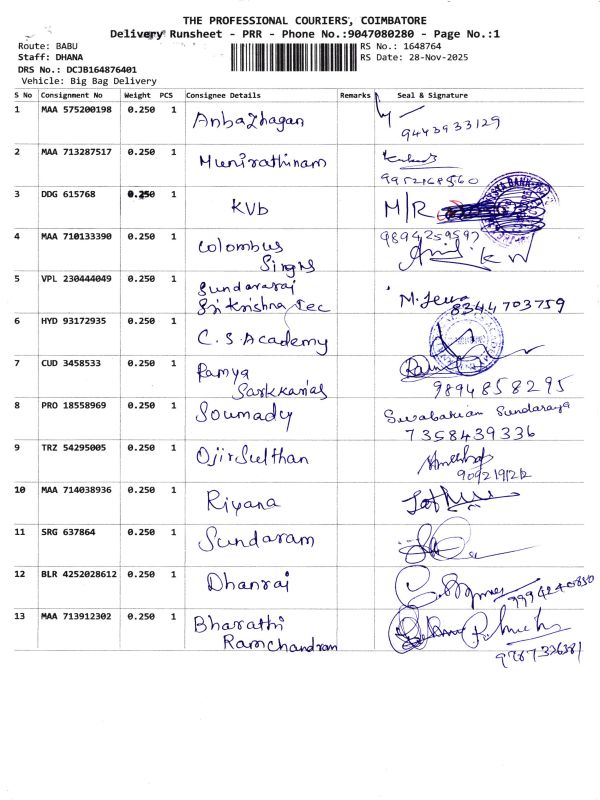 THE PROFESSIONAL COURIERS, COIMBATORE
Delivery Runsheet - PRR - Phone No.:9047080280 - Page No.:1
Route: BABU
RS No.: 1648764
Staff: DHANA
RS Date: 28-Nov-2025
DRS No.: DCJB164876401
Vehicle: Big Bag Delivery
S No Consignment No Weight PCS Consignee Details Remarks Seal & Signature
1 MAA 575200198 0.250 1 Anbazhagan
9443933129
2 MAA 713287517 0.250 1 Munirathinam
9952168560
3 DDG 615768 0.250 1 KVb M/R
9894259597
4 MAA 710133390 0.250 1 Colombus
Singrs
5 VPL 230444049 0.250 1 Sundararaj
Sri Krishna Tec
M. Jeeva
8344703759
6 HYD 93172935 0.250 1 C.S. Academy
7 CUD 3458533 0.250 1 Ramya
Sarkkarias
9894858295
8 PRO 18558969 0.250 1 Soumady
Sundaraja
7358439336
9 TRZ 54295005 0.250 1 OjirSulthan
10 MAA 714038936 0.250 1 Riyana
11 SRG 637864 0.250 1 Sundaram
12 BLR 4252028612 0.250 1 Dhanraj
13 MAA 713912302 0.250 1 Bharathi
Ramchandram